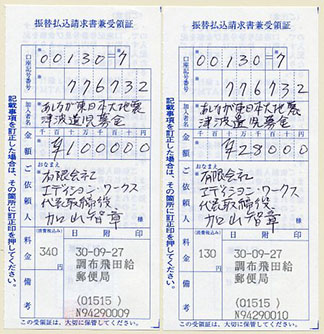 振替払込請求書兼受領証
口座記号番号
00130-7
776732
加入者名
あしなが東日本大地震
津波遺児募金
金額
千百十万千百十円
¥100000
ご依頼人
おなまえ
有限会社
エディション・ワークス
代表取締役
加山智章
様
料金
(消費税込み)
340
円
日附印
30-09-27
調布飛田給
郵便局
(01515)
N94290009
備考
この受領証は、大切に保管してください。
記載事項を訂正した場合は、その箇所に訂正印を押してください。
振替払込請求書兼受領証
口座記号番号
00130-7
776732
加入者名
あしなが東日本大地震
津波遺児募金
金額
千百十万千百十円
¥28000
ご依頼人
おなまえ
有限会社
エディション・ワークス
代表取締役
加山智章
様
料金
(消費税込み)
130
円
日附印
30-09-27
調布飛田給
郵便局
(01515)
N94290010
備考
この受領証は、大切に保管してください。
記載事項を訂正した場合は、その箇所に訂正印を押してください。